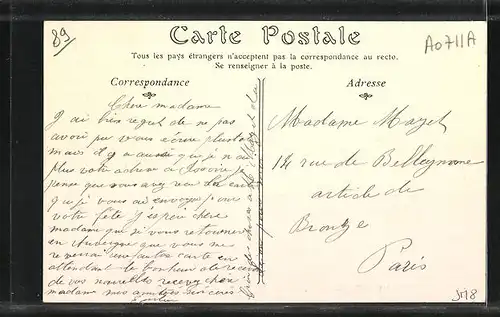 89
Carte Postale
A0711A
Tous les pays étrangers n'acceptent pas la correspondance au recto.
Se renseigner à la poste.
Correspondance
Adresse
Chère madame
J ai bien regret de ne pas
avoir pu vous écrire plustot
mais il y a aussi que je n ai
plus votre adresse a
pense que vous avez reçu la carte
que je vous ai envoyer pour
votre fête J espere chère
madame que si vous retournez
en Auvergne que vous me
une autre carte en
attendant le bonheur de recevoir
de vos nouvelles recevez chère
madame mes amitiés sincères
Madame Mayet
14 rue de Belleyme
article de
Bronze
Paris